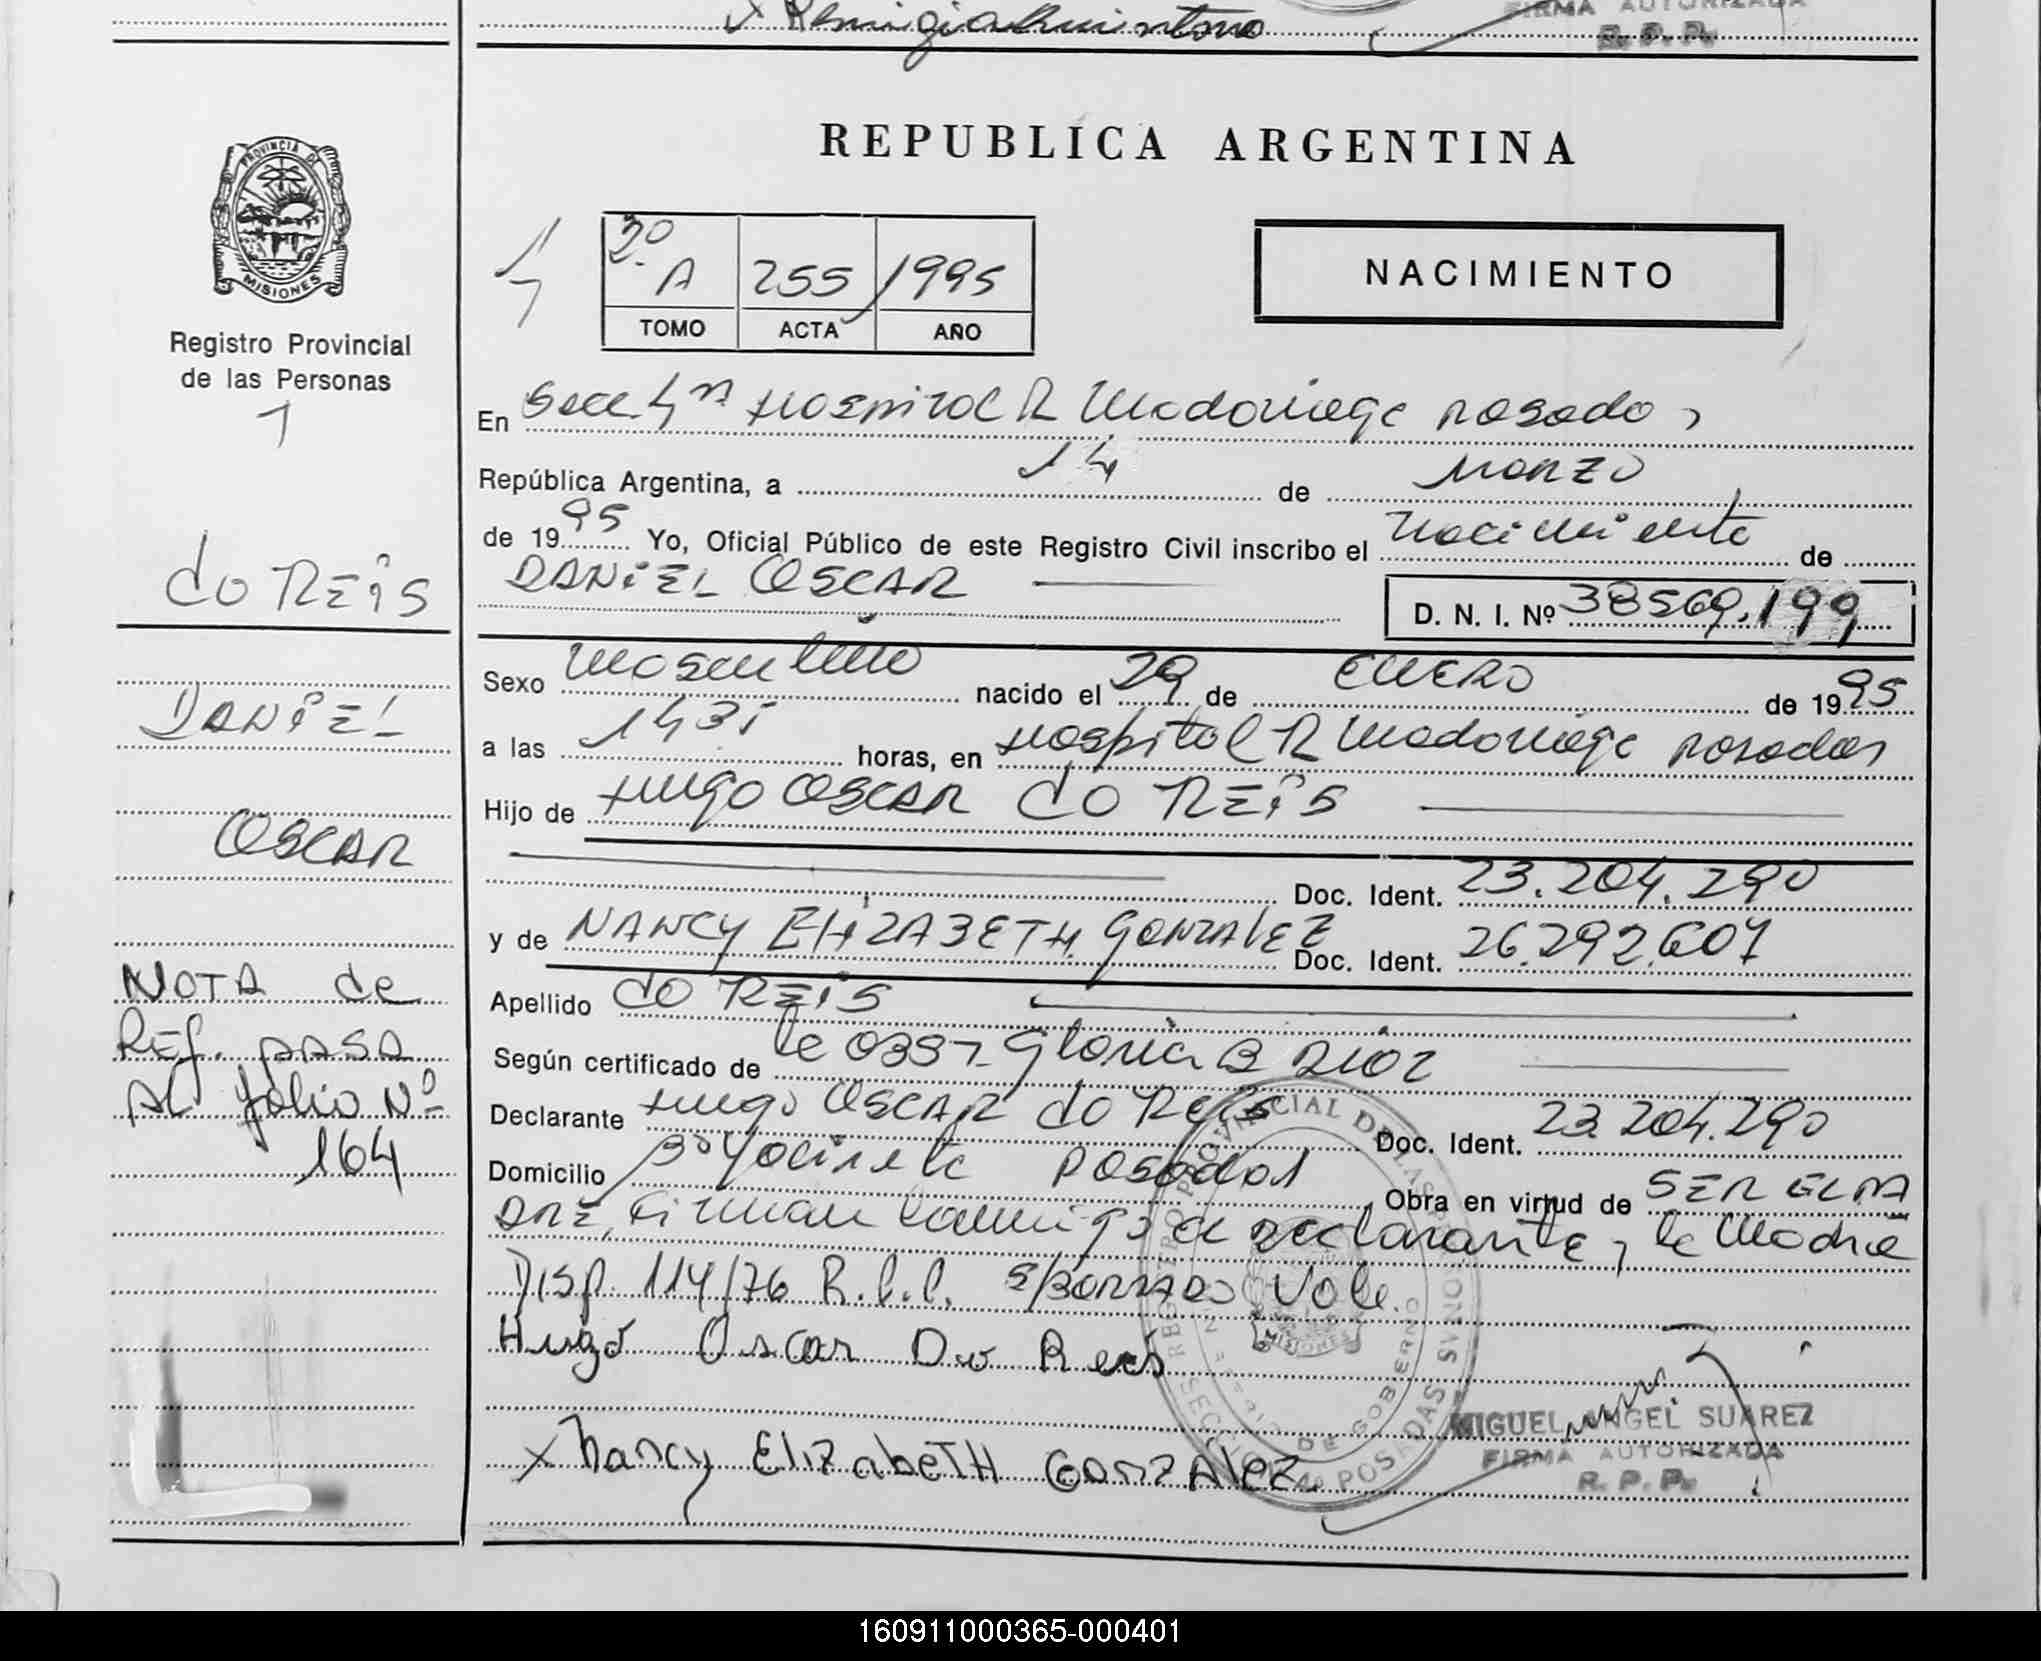 x Remigia Quintana
FIRMA AUTORIZADA
R. P. P.
PROVINCIA DE
MISIONES
Registro Provincial
de las Personas
1
do REiS
DANiEL
OSCAR
NOTA de
REf. PASA
AL folio Nº
164
REPUBLICA ARGENTINA
3º A 255 1995
TOMO ACTA AÑO
NACIMIENTO
En Secc. 4ta Hospital R Madariaga Posadas
República Argentina, a 14 de Marzo
de 1995 Yo, Oficial Público de este Registro Civil inscribo el nacimiento de
DANiEL OSCAR
D. N. I. Nº 38569.199
Sexo masculino nacido el 29 de ENERO de 1995
a las 1435 horas, en Hospital R Madariaga Posadas
Hijo de Hugo OSCAR do REiS
Doc. Ident. 23.204.290
y de NANCY ELIZABETH GONZALEZ Doc. Ident. 26.292.607
Apellido do REiS
Según certificado de la obst. Gloria B Díaz
Declarante Hugo OSCAR do REiS Doc. Ident. 23.204.290
Domicilio Bº Yacireta Posadas Obra en virtud de SER EL PA
DRE, firman conmigo el declarante y la Madre
Disp. 114/76 R.C.C. S/BORRADO Vale.
Hugo Oscar Do Reis
x Nancy ElizabeTH Gonzalez
MIGUEL ANGEL SUAREZ
FIRMA AUTORIZADA
R. P. P.
160911000365-000401